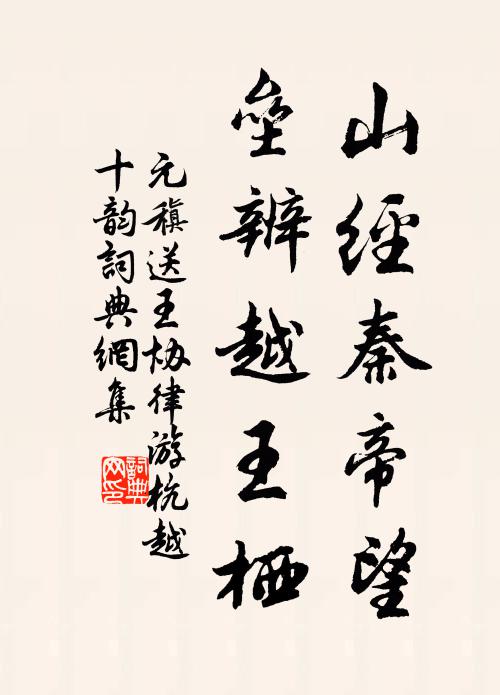 山經秦帝望
壘辨越王栖
元稹送王協律游杭越
十韵詞典網集
詞典网印